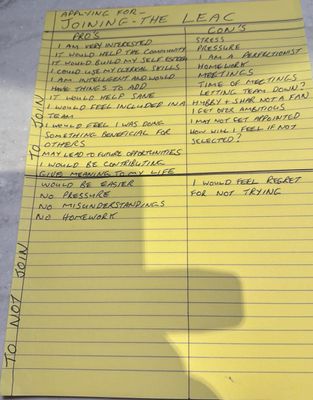 APPLYING FOR -
JOINING - THE LEAC
PRO'S
I AM VERY INTERESTED
IT WOULD HELP THE COMMUNITY
IT WOULD BUILD MY SELF ESTEEM
I COULD USE MY CLERICAL SKILLS
I AM INTELLIGENT AND WOULD
HAVE THINGS TO ADD
IT WOULD HELP SANE
I WOULD FEEL INCLUDED IN A
TEAM
I WOULD FEEL I WAS DOING
SOMETHING BENEFICIAL FOR
OTHERS
MAY LEAD TO FUTURE OPPORTUNITIES
I WOULD BE CONTRIBUTING
GIVE MEANING TO MY LIFE
CON'S
STRESS
PRESSURE
I AM A PERFECTIONIST
HOMEWORK
MEETINGS
TIME OF MEETINGS
LETTING TEAM DOWN?
HUBBY + SHAR NOT A FAN
I GET OVER AMBITIOUS
I MAY NOT GET APPOINTED
HOW WILL I FEEL IF NOT
SELECTED?
TO JOIN
WOULD BE EASIER
NO PRESSURE
NO MISUNDERSTANDINGS
NO HOMEWORK
I WOULD FEEL REGRET
FOR NOT TRYING
TO NOT JOIN